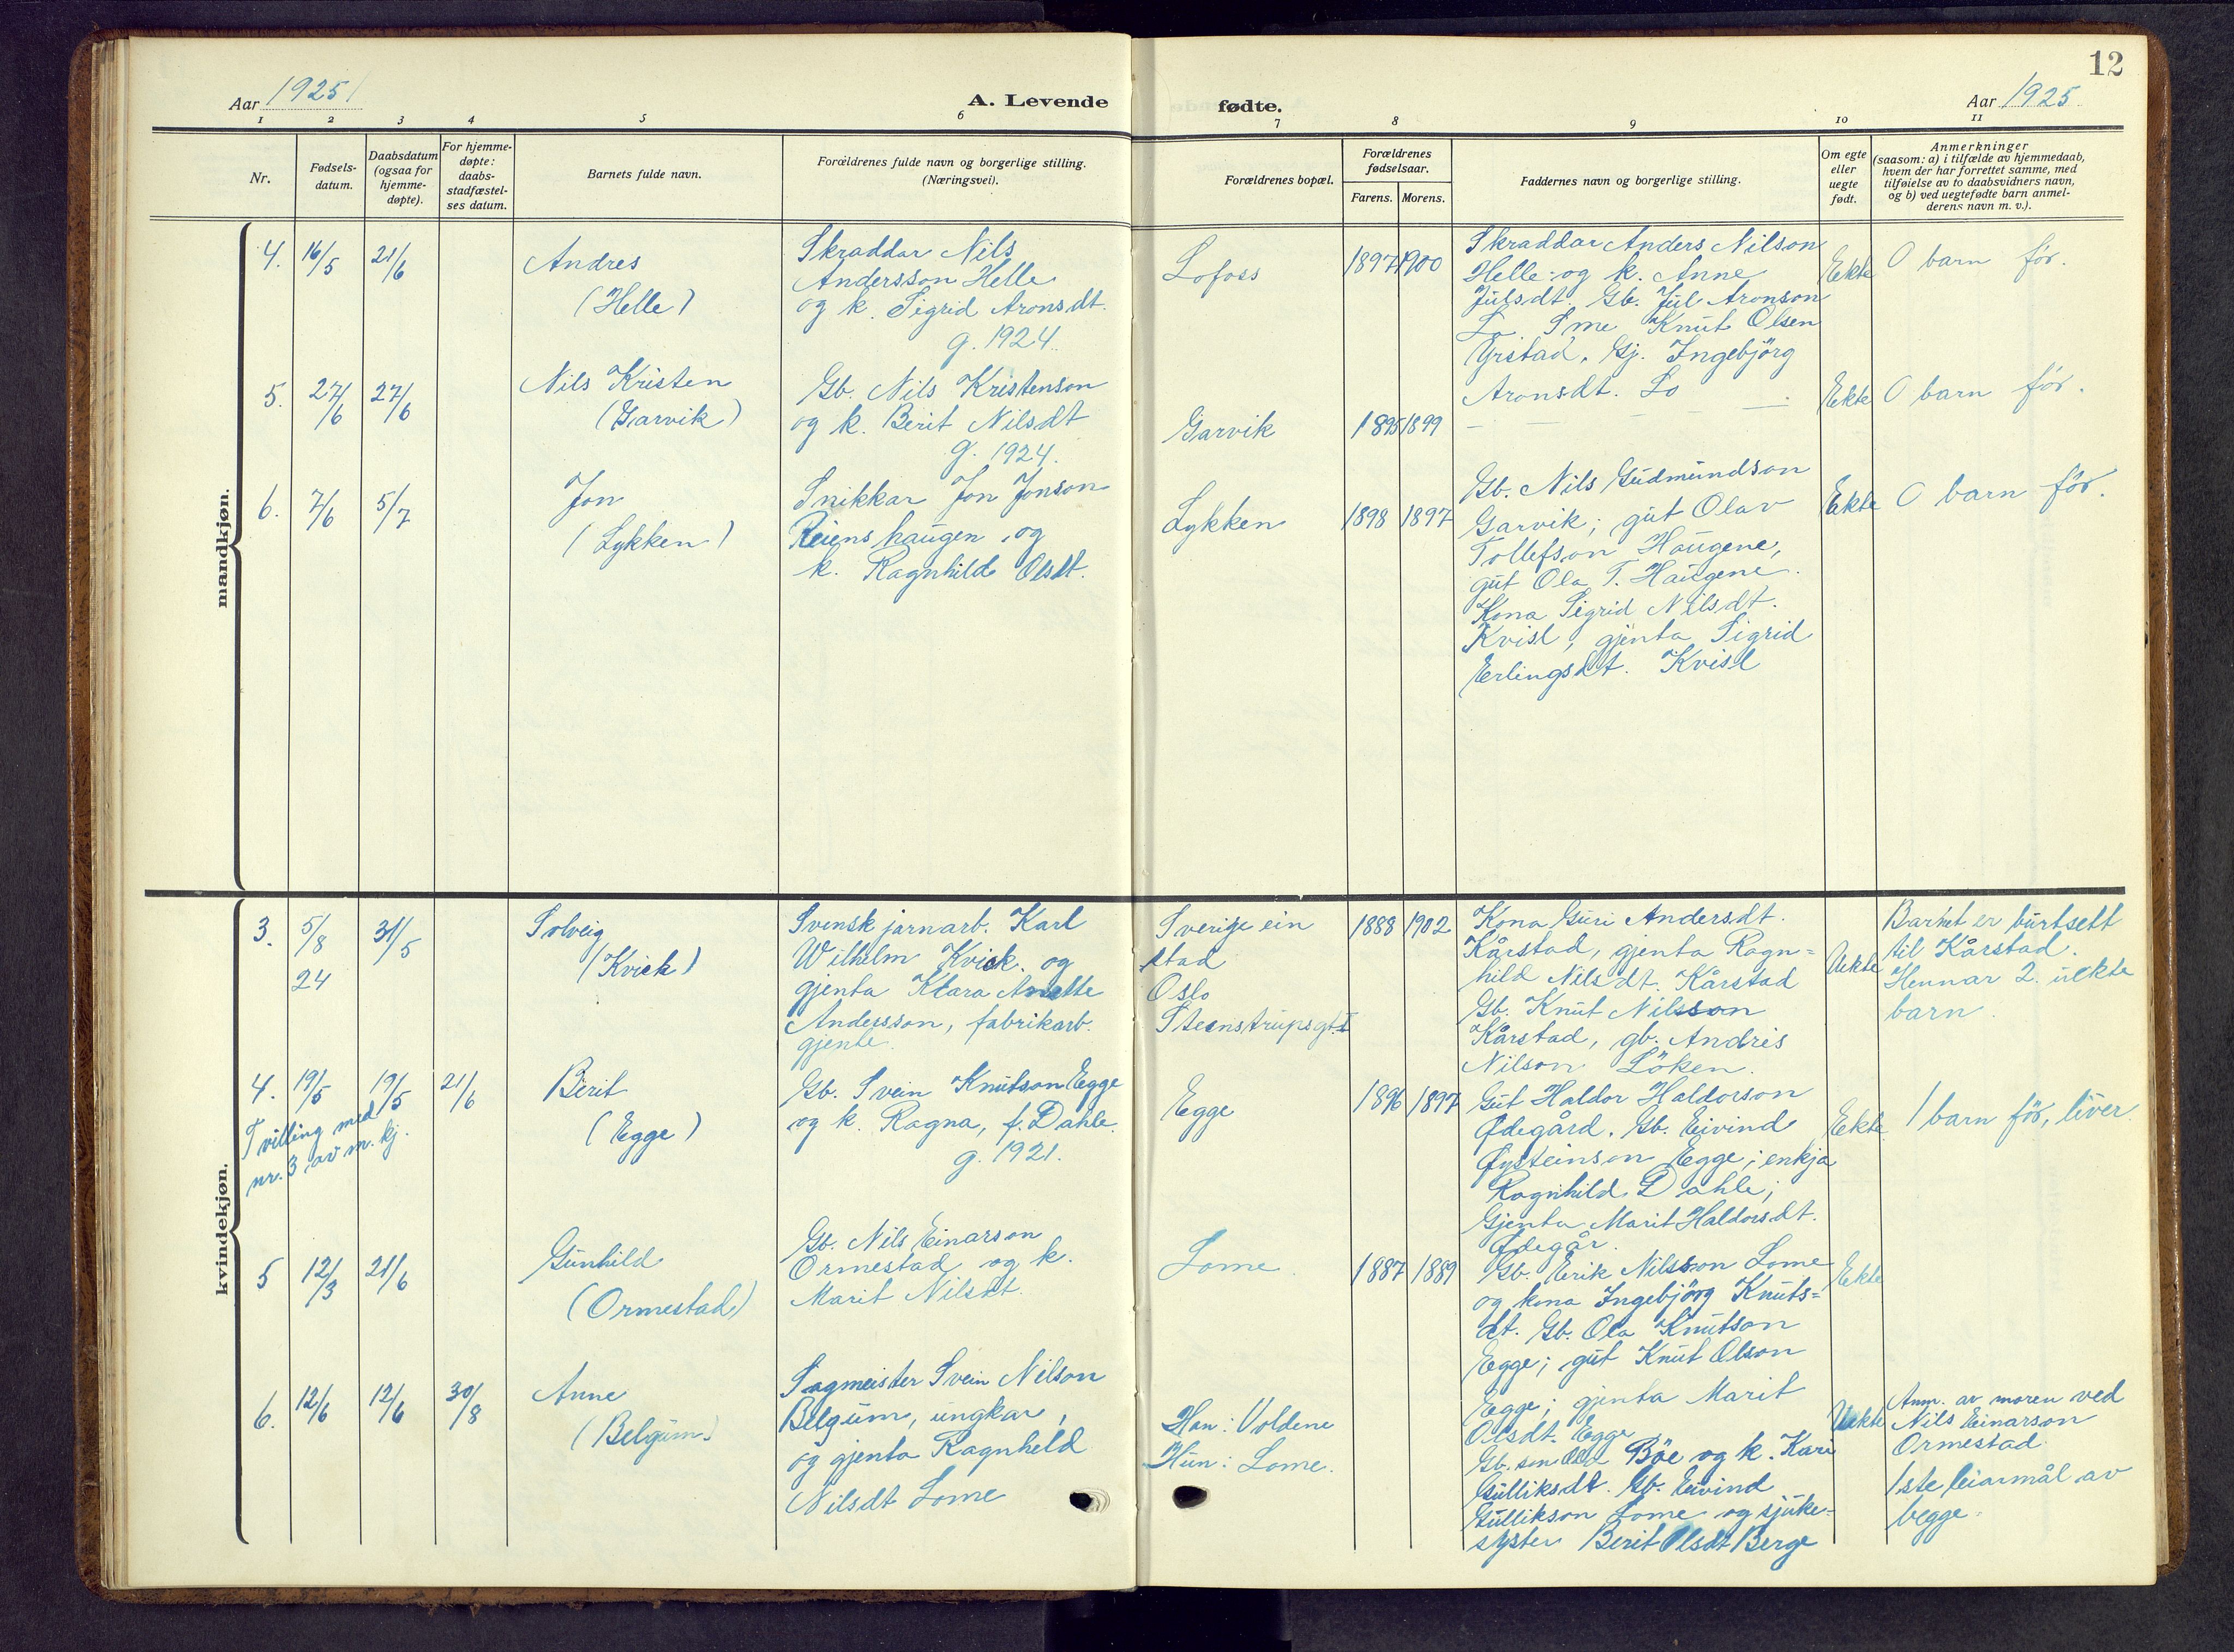 12
Aar 1925
A. Levende
fødte.
Aar 1925.
1 2 3 4 5 6 7 8 9 10 11
Nr.
Fødsels-
datum.
Daabsdatum
(ogsaa for
hjemme-
døpte).
For hjemme-
døpte:
daabs-
stadfæstel-
ses datum.
Barnets fulde navn.
Forældrenes fulde navn og borgerlige stilling.
(Næringsvei).
Forældrenes bopæl.
Forældrenes
fødselsaar.
Farens. Morens.
Faddernes navn og borgerlige stilling.
Om egte
eller
uegte
født.
Anmerkninger
(saasom: a) i tilfælde av hjemmedaab,
hvem der har forrettet samme, med
tilføielse av to daabsvidners navn,
og b) ved uegtefødte barn anmel-
derens navn m. v.).
mandkjøn.
4. 16/5 21/6
Andres
(Helle)
Skraddar Nils
Andersson Helle
og k. Sigrid Aronsdt.
g. 1924.
Lofoss
1897 1900
Skraddar Anders Nilson
Helle og k. Anne
Julsdt. Gb. Jul Aronson
Lo Sme Knut Olsen
Yrstad. Gj. Ingebjörg
Aronsdt. Lo
Ekte
0 barn för.
5. 27/6 27/6
Nils Kristen
(Garvik)
Gb. Nils Kristenson
og k. Berit Nilsdt
g. 1924.
Garvik
1895 1899
— — —
Ekte
0 barn för.
6. 7/6 5/7
Jon
(Lykken)
Snikkar Jon Jonson
Reienshaugen og
k. Ragnhild Olsdt.
Lykken
1898 1897
Gb. Nils Gudmundson
Garvik; gut Olav
Tollefson Haugene,
gut Ola T. Haugene.
Kona Sigrid Nilsdt.
Kvisl, gjenta Sigrid
Erlingsdt. Kvisl
Ekte
0 barn för.
kvindekjøn.
3. 5/8 31/5
24
Solveig
(Kvick)
Svensk jarnarb. Karl
Wilhelm Kvick. og
gjenta Klara Anette
Andersson, fabrikarb.
gjente.
Sverige ein
stad
Oslo
Steenstrupsgt.I
1888 1902
Kona Guri Andersdt.
Kårstad, gjenta Ragn=
hild Nilsdt. Kårstad
Gb. Knut Nilsson
Kårstad, gb. Andris
Nilson Löken.
Uekte
Barnet er burtsett
til Kårstad.
Hennar 2. uekte
barn.
4. 19/5 19/5 21/6
Tvilling med
nr. 3 av m. kj.
Berit
(Egge)
Gb. Svein Knutson Egge
og k. Ragna, f. Dahle.
g. 1921.
Egge
1896 1897
Gut Haldor Haldorson
Ødegård. Gb. Eivind
Øysteinson Egge; enkja
Ragnhild Dahle;
Gjenta Marit Haldorsdt.
Ødegår.
Ekte.
1 barn för, liver
5 12/3 21/6
Gunhild
(Ormestad)
Gb. Nils Einarson
Ormestad og k.
Marit Nilsdt.
Lome.
1887 1889
Gb. Erik Nilsson Lome
og kona Ingebjörg Knuts=
dt. Gb. Ola Knutson
Egge; gut Knut Olson
Egge; gjenta Marit
Olsdt. Egge
Ekte
6. 12/6 12/6 30/8
Anne
(Belgum)
Sagmeister Svein Nilson
Belgum, ungkar,
og gjenta Ragnheld
Nilsdt Lome
Han: Voldene
Hun: Lome.
Gb. son Bøe og k. Kari
Gulliksdt. Gb. Eivind
Gullikson Lome og sjuke=
syster Berit Olsdt Berge
Uekte
Anm. av moren ved
Nils Einarson
Ormestad
1ste leiarmål av
begge.